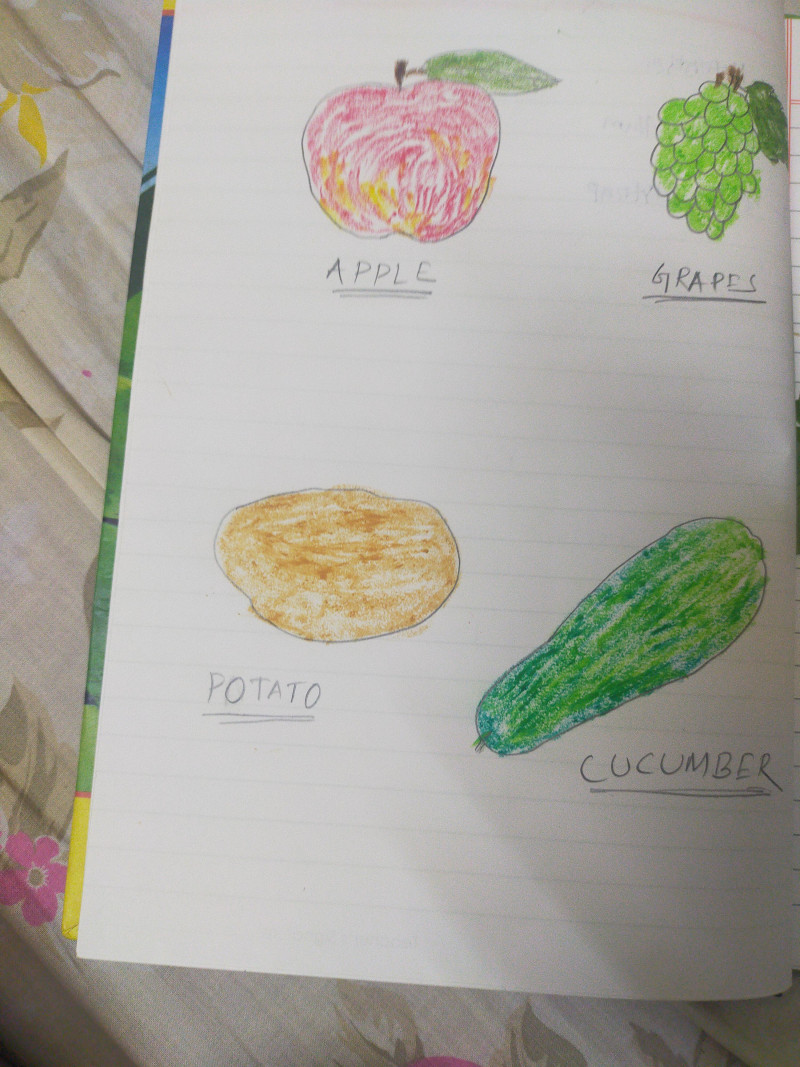 APPLE
GRAPES
POTATO
CUCUMBER